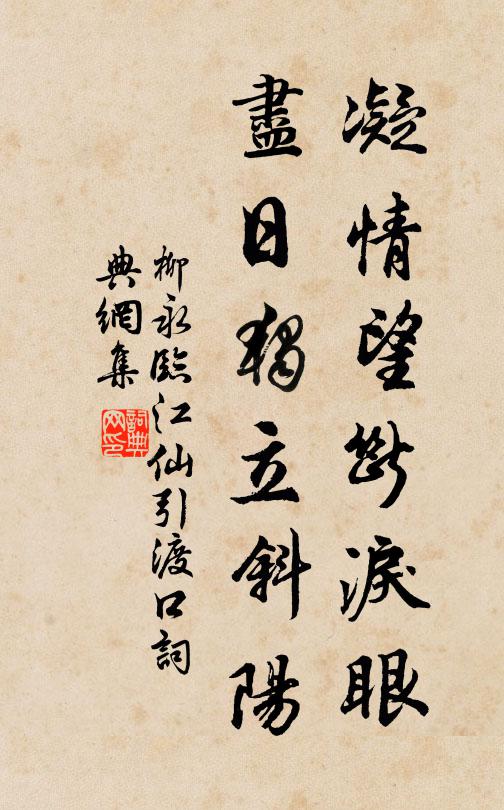 凝情望斷淚眼
盡日獨立斜陽
柳永臨江仙引渡口詞
典網集
詞典網印